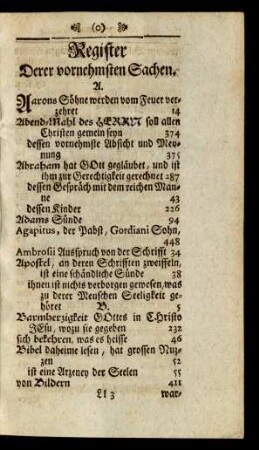 (o)
Register
Derer vornehmsten Sachen.
A.
Aarons Söhne werden vom Feuer ver-
zehret 14
Abend-Mahl des HERRN soll allen
Christen gemein seyn 374
dessen vornehmste Absicht und Mey-
nung 375
Abraham hat GOtt gegläubet, und ist
ihm zur Gerechtigkeit gerechnet 287
dessen Gespräch mit dem reichen Man-
ne 43
dessen Kinder 226
Adams Sünde 94
Agapitus, der Pabst, Gordiani Sohn,
448
Ambrosii Ausspruch von der Schrifft 34
Apostel, an deren Schrifften zweiffeln,
ist eine schändliche Sünde 38
ihnen ist nichts verborgen gewesen, was
zu derer Menschen Seeligkeit ge-
höret B. 5
Barmherzigkeit GOttes in CHristo
JEsu, wozu sie gegeben 232
sich bekehren, was es heisse 46
Bibel daheime lesen, hat grossen Nuz-
zen 52
ist eine Arzeney der Seelen 55
von Bildern 411
Ll 3 war-